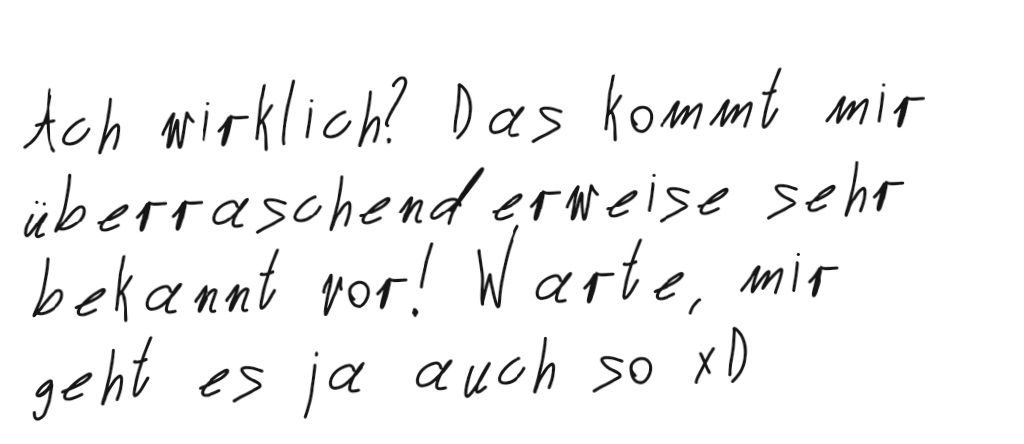 Ach wirklich? Das kommt mir
überraschenderweise sehr
bekannt vor! Warte, mir
geht es ja auch so xD